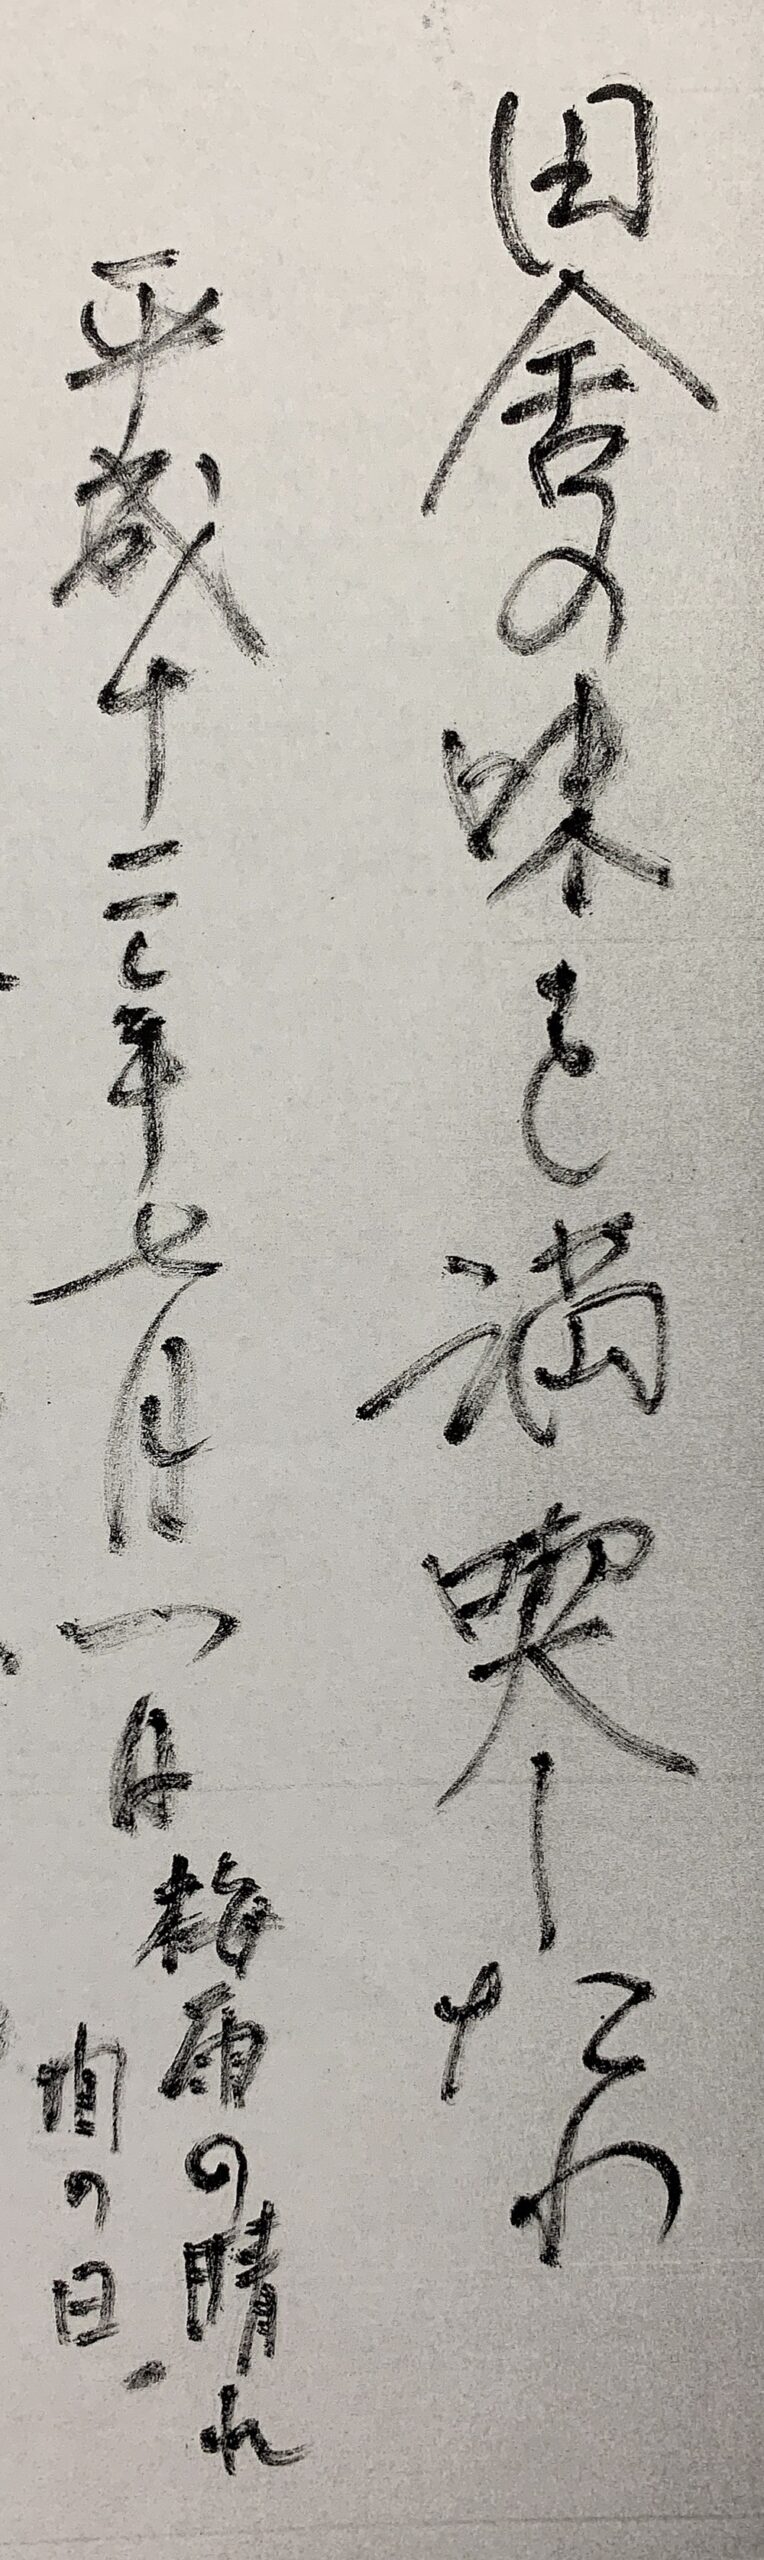 田舎の味を満喫したわ
平成十二年七月一日
梅雨の晴れ
間の日、